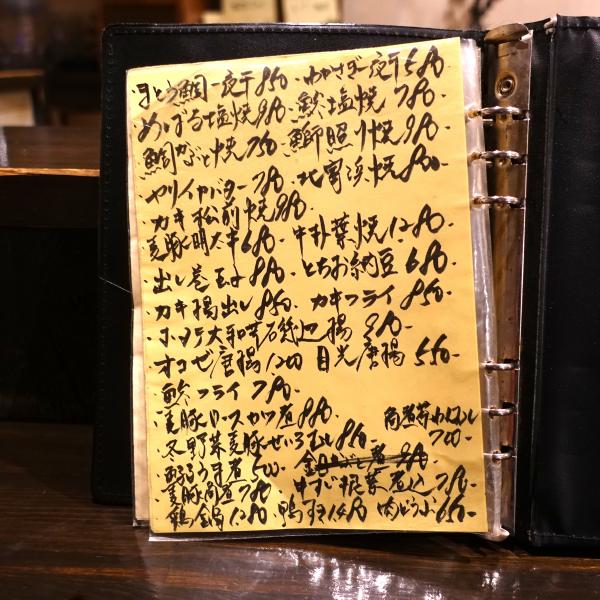 ・まとう鯛一夜干850・わかさぎ一夜干580
・めばる塩焼980・鮗塩焼780
・鯛かぶと焼750・鰤照り焼980
・ヤリイカバター780・北寄浜焼800
・カキ松前焼980
・麦豚明太 680・牛朴葉焼1280
・出し巻玉子880・とちお納豆680
・カキ揚出し850・カキフライ850
・ホタテ大和芋磯辺揚980
・オコゼ唐揚1200 目光唐揚550-
・フライ780
・麦豚ロースカツ煮880
角煮芋わんむし700-
・冬野菜麦豚せいろむし880-
・うま煮600
・麦豚角煮780・牛すじ根菜煮込780-
・鴨鍋1280・鴨すき1480・肉どうふ680-